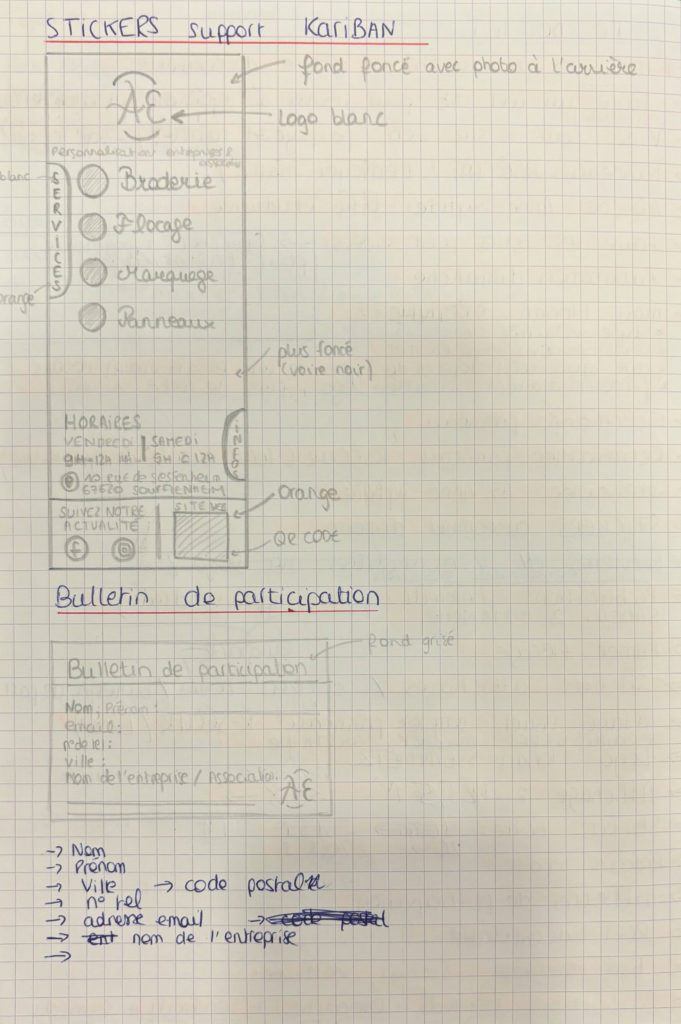 STICKERS support KARIBAN
fond foncé avec photo à l'arrière
AE
Logo blanc
Personnalisation entreprises &
blanc
SERVICES
Broderie
Flocage
Marquage
orange
Panneaux
plus foncé
(voire noir)
HORAIRES
VENDREDI | SAMEDI
9H-12H | 9H à 12H
INFOS
10 rue de Sessenheim
67620 SOUFFLENHEIM
Orange
SUIVEZ NOTRE
ACTUALITÉ :
SITE WEB
f
QR CODE
Bulletin de participation
fond grisé
Bulletin de participation
Nom, Prénom :
email :
n° de tel :
ville :
Nom de l'entreprise / Association
AE
→ Nom
→ Prénom
→ Ville → code postal
→ n° tel
→ adresse email → code postal
→ ent nom de l'entreprise
→